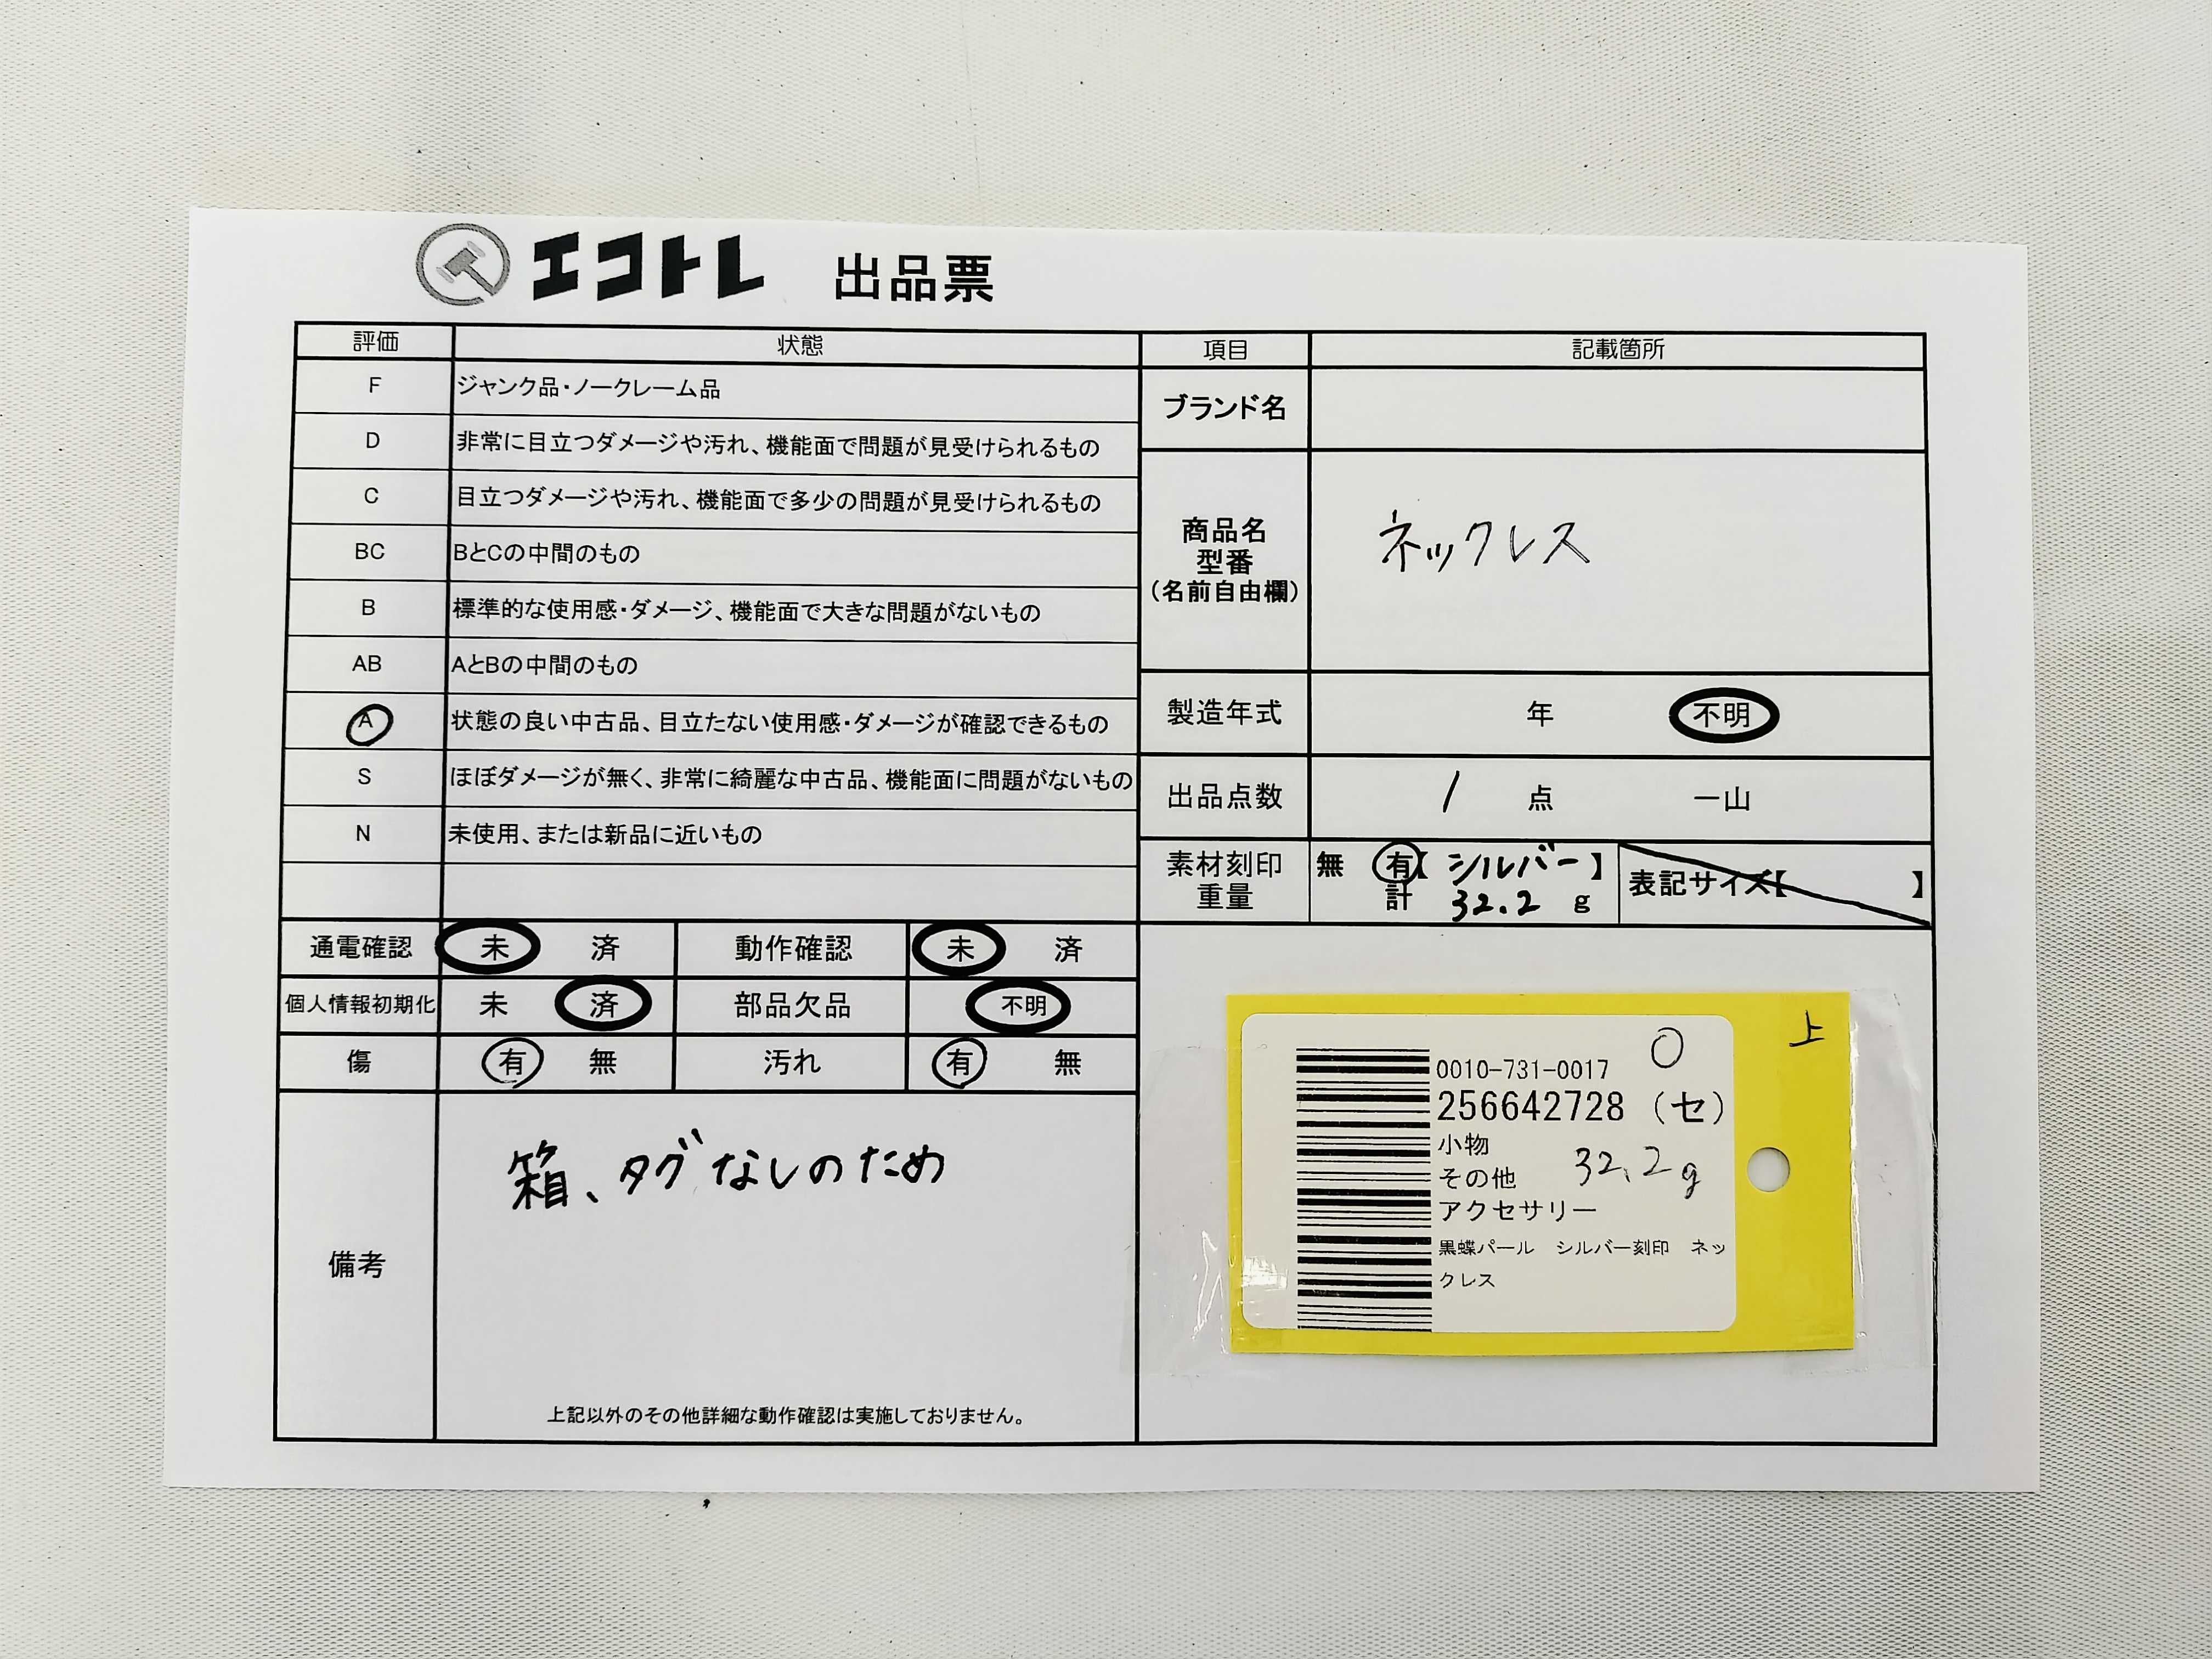 エコトレ 出品票
評価 状態 項目 記載箇所
F ジャンク品・ノークレーム品
D 非常に目立つダメージや汚れ、機能面で問題が見受けられるもの
C 目立つダメージや汚れ、機能面で多少の問題が見受けられるもの
BC BとCの中間のもの
B 標準的な使用感・ダメージ、機能面で大きな問題がないもの
AB AとBの中間のもの
A 状態の良い中古品、目立たない使用感・ダメージが確認できるもの
S ほぼダメージが無く、非常に綺麗な中古品、機能面に問題がないもの
N 未使用、または新品に近いもの
ブランド名
商品名
型番
(名前自由欄)
ネックレス
製造年式 年 不明
出品点数 1 点 一山
素材刻印
重量
無 有【 シルバー 】
計 32.2 g
表記サイズ【 】
通電確認 未 済 動作確認 未 済
個人情報初期化 未 済 部品欠品 不明
傷 有 無 汚れ 有 無
備考
箱、タグなしのため
上記以外のその他詳細な動作確認は実施しておりません。
上
0010-731-0017 〇
256642728 (セ)
小物
その他 32.2g
アクセサリー
黒蝶パール シルバー刻印 ネッ
クレス